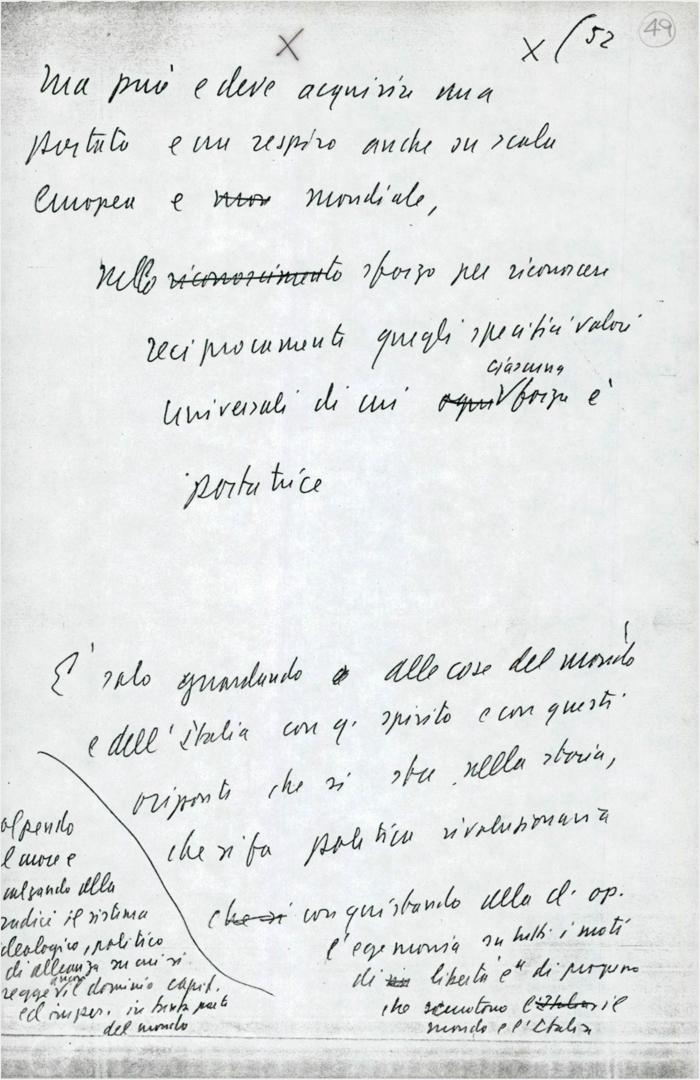 X X (52 49
Ma può e deve acquisire una
portata e un respiro anche su scala
Europea e mon mondiale,
nello riconoscimento sforzo per riconoscere
reciprocamente quegli specifici valori
ciascuna
universali di cui ogni forza è
portatrice
E' solo guardando a alle cose del mondo
e dell'Italia con q. spirito e con questi
che si sta nella storia,
che si fa politica rivoluzionaria
che si conquistando alla cl. op.
l'egemonia su tutti i moti
di libertà e di progresso
che scuotono l'Italia il
mondo e l'Italia
colpendo
al cuore e
alla
radici il sistema
ideologico, politico
di alleanza su cui si
ancora
regge il dominio capit.
ed imper. in tanta parte
del mondo